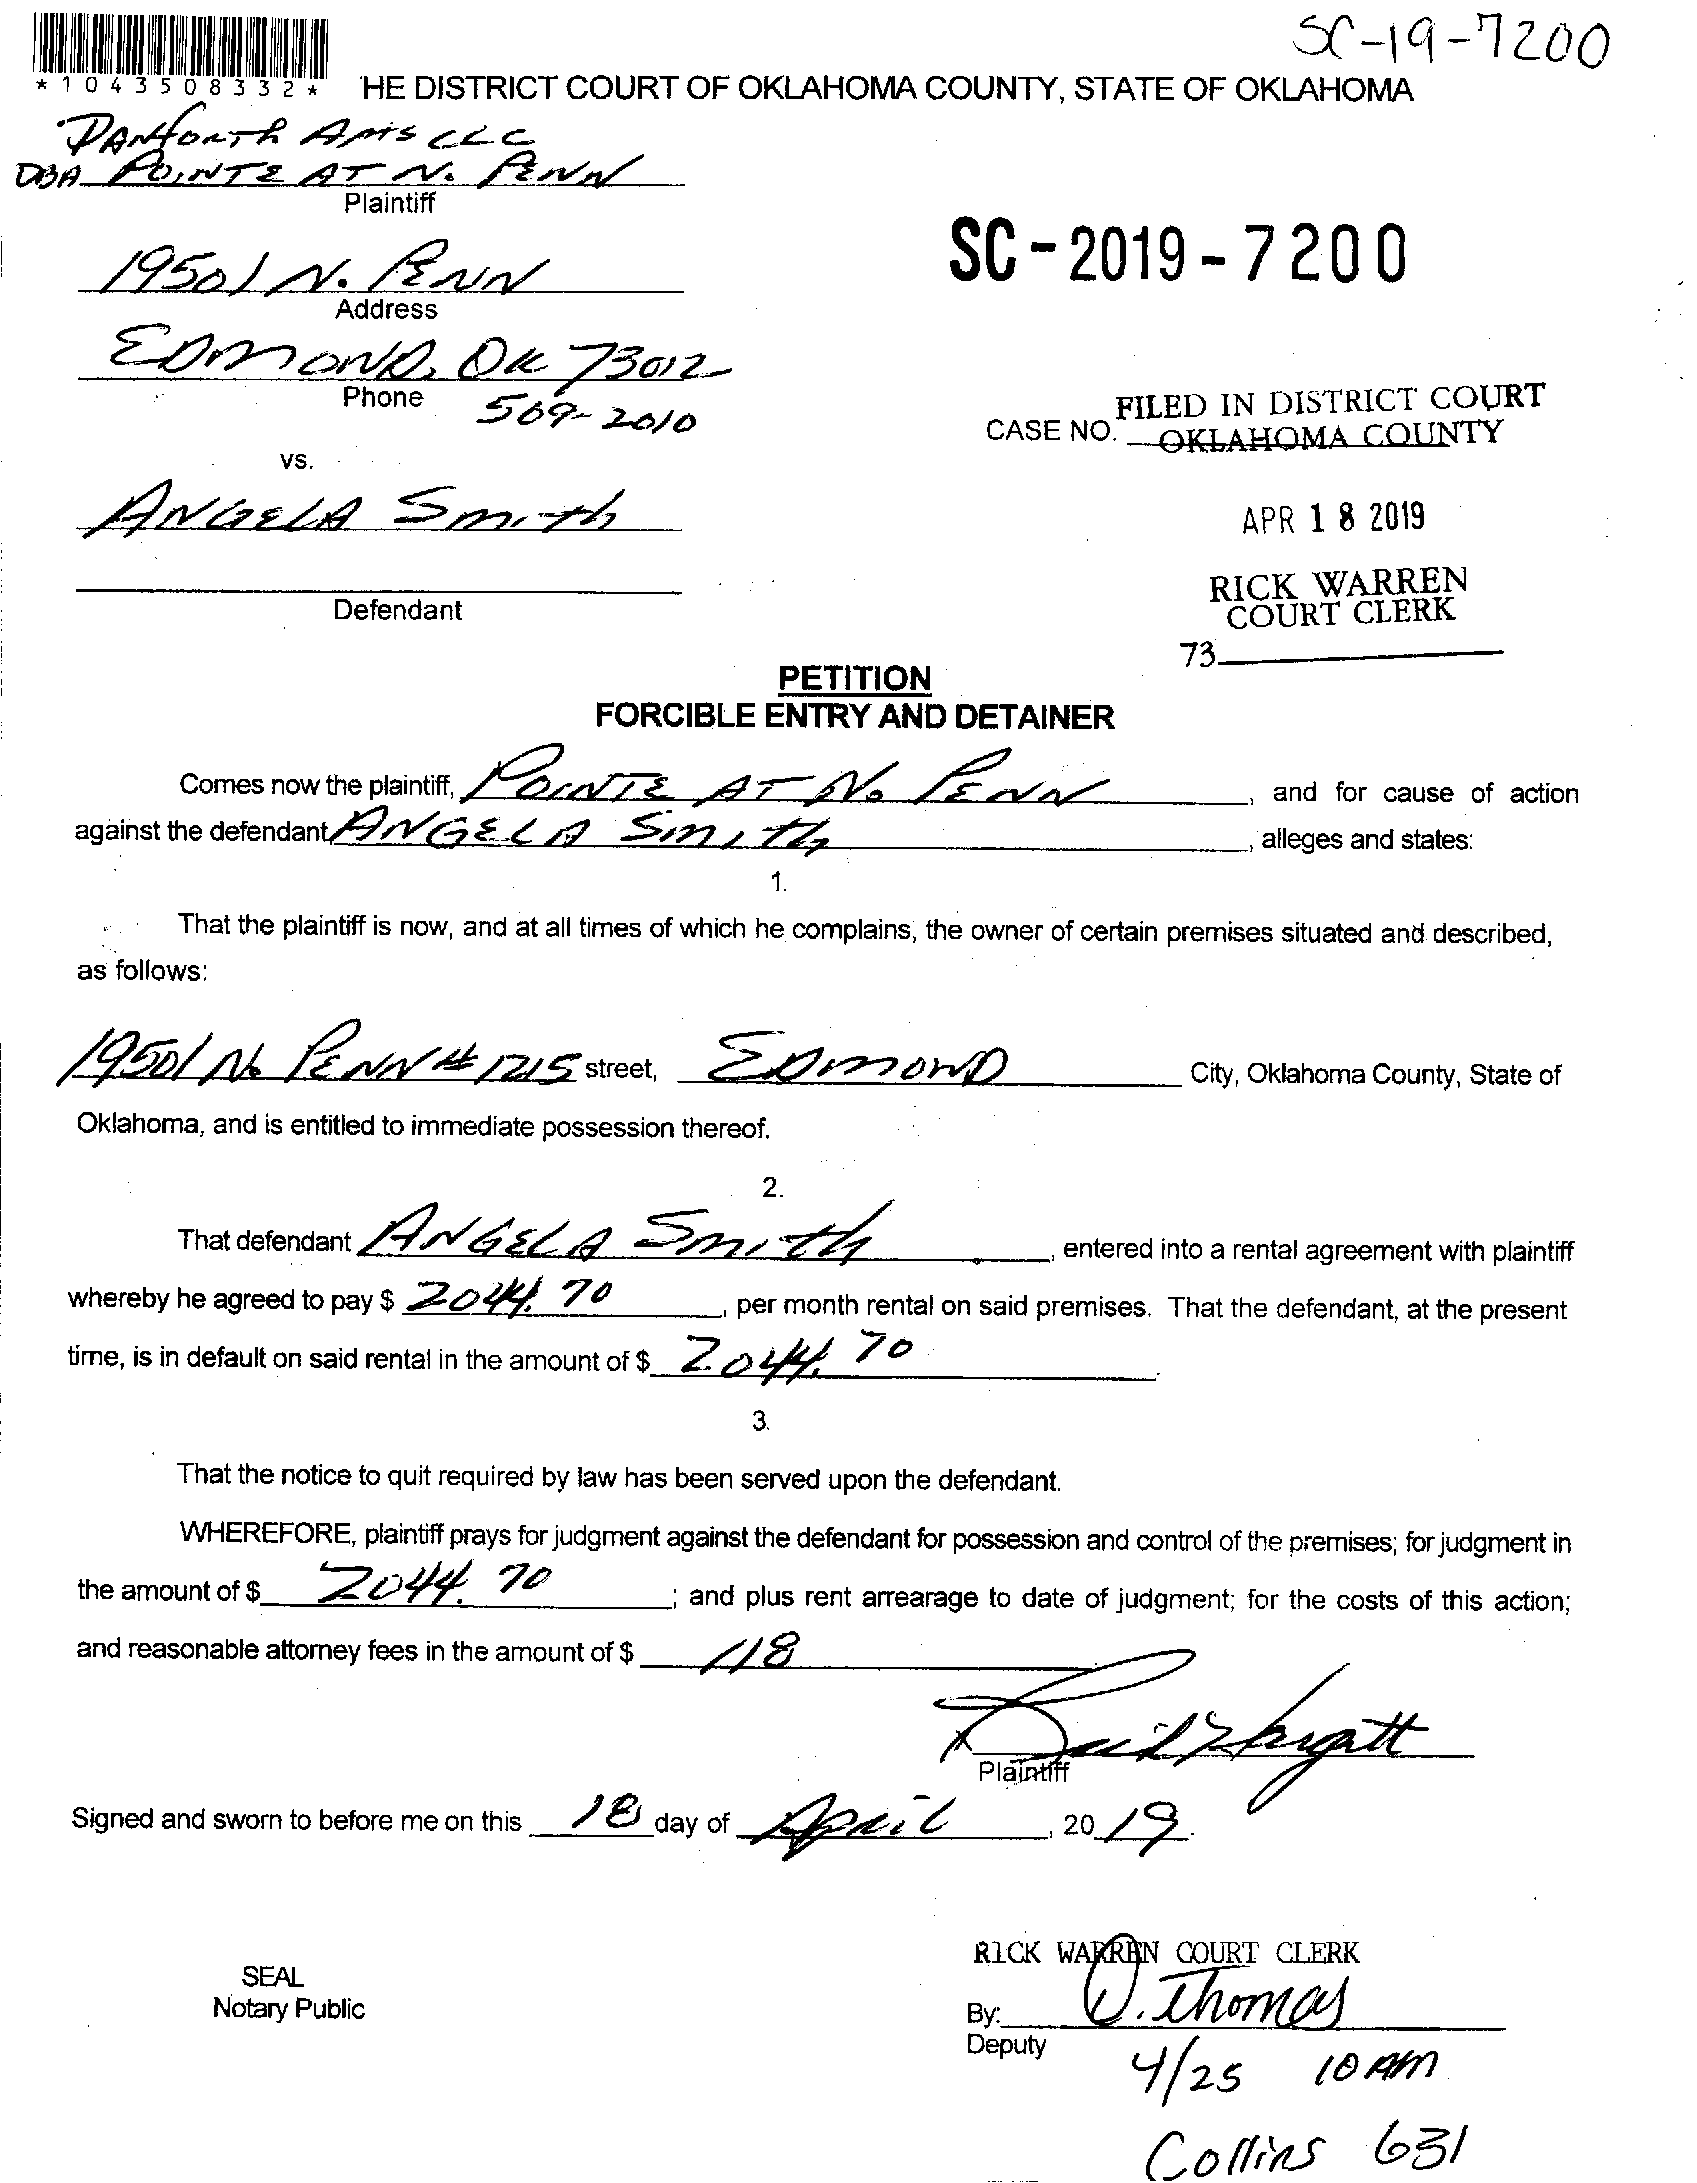 SC-19-7200
*1043508332* HE DISTRICT COURT OF OKLAHOMA COUNTY, STATE OF OKLAHOMA
DANFORTH APTS LLC
DBA POINTE AT N. PENN
Plaintiff
SC-2019-7200
19501 N. PENN
Address
EDMOND, OK 73012
Phone 569-2010
FILED IN DISTRICT COURT
CASE NO. OKLAHOMA COUNTY
vs.
ANGELA Smith
APR 18 2019
Defendant
RICK WARREN
COURT CLERK
73
PETITION
FORCIBLE ENTRY AND DETAINER
Comes now the plaintiff, POINTE AT N. PENN, and for cause of action
against the defendant ANGELA Smith, alleges and states:
1.
That the plaintiff is now, and at all times of which he complains, the owner of certain premises situated and described,
as follows:
19501 N. PENN # 1215 street, EDMOND City, Oklahoma County, State of
Oklahoma, and is entitled to immediate possession thereof.
2.
That defendant ANGELA Smith, entered into a rental agreement with plaintiff
whereby he agreed to pay $ 2044.70, per month rental on said premises. That the defendant, at the present
time, is in default on said rental in the amount of $ 2044.70.
3.
That the notice to quit required by law has been served upon the defendant.
WHEREFORE, plaintiff prays for judgment against the defendant for possession and control of the premises; for judgment in
the amount of $ 2044.70; and plus rent arrearage to date of judgment; for the costs of this action;
and reasonable attorney fees in the amount of $ 118
Plaintiff
Signed and sworn to before me on this 18 day of April, 2019.
RICK WARREN COURT CLERK
SEAL
Notary Public
By: D. Thomas
Deputy
4/25 10 AM
Collins 631